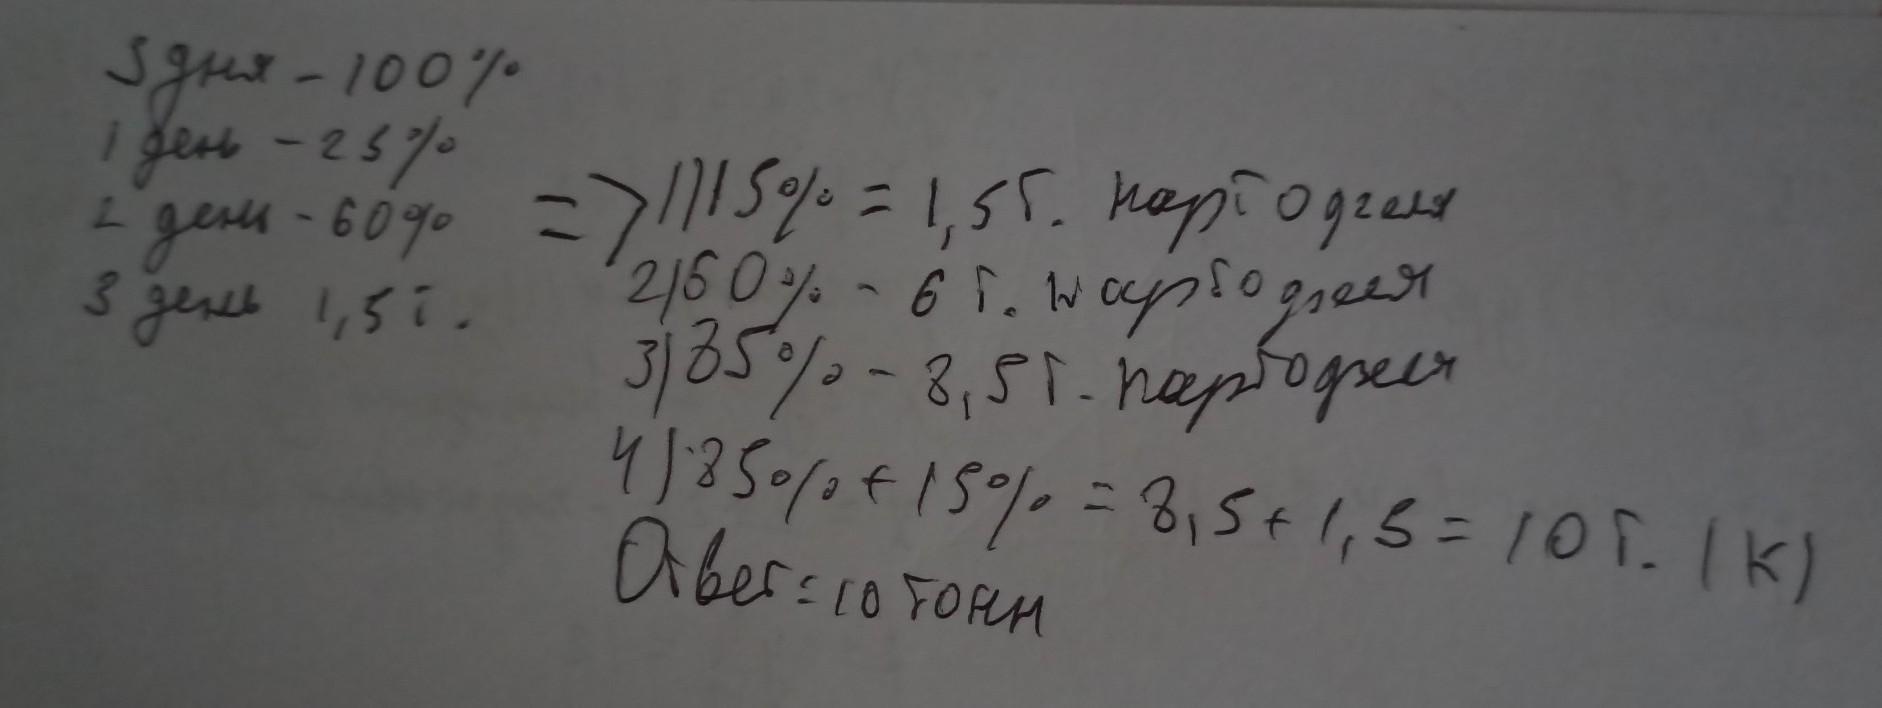 3 дня - 100%
1 день - 25%
2 день - 60%
3 день 1,5 т.
=> 1) 15% = 1,5 т. картофеля
2) 60% - 6 т. картофеля
3) 85% - 8,5 т. картофеля
4) 85% + 15% = 8,5 + 1,5 = 10 т. (К)
Ответ: 10 тонн